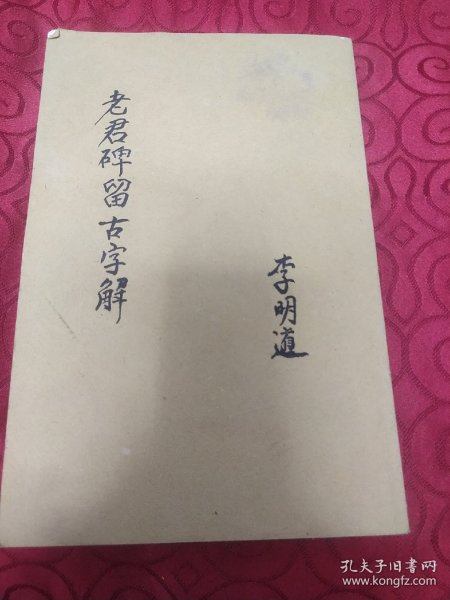 老君碑留古字解
李明道
孔夫子旧书网
www.kongfz.com